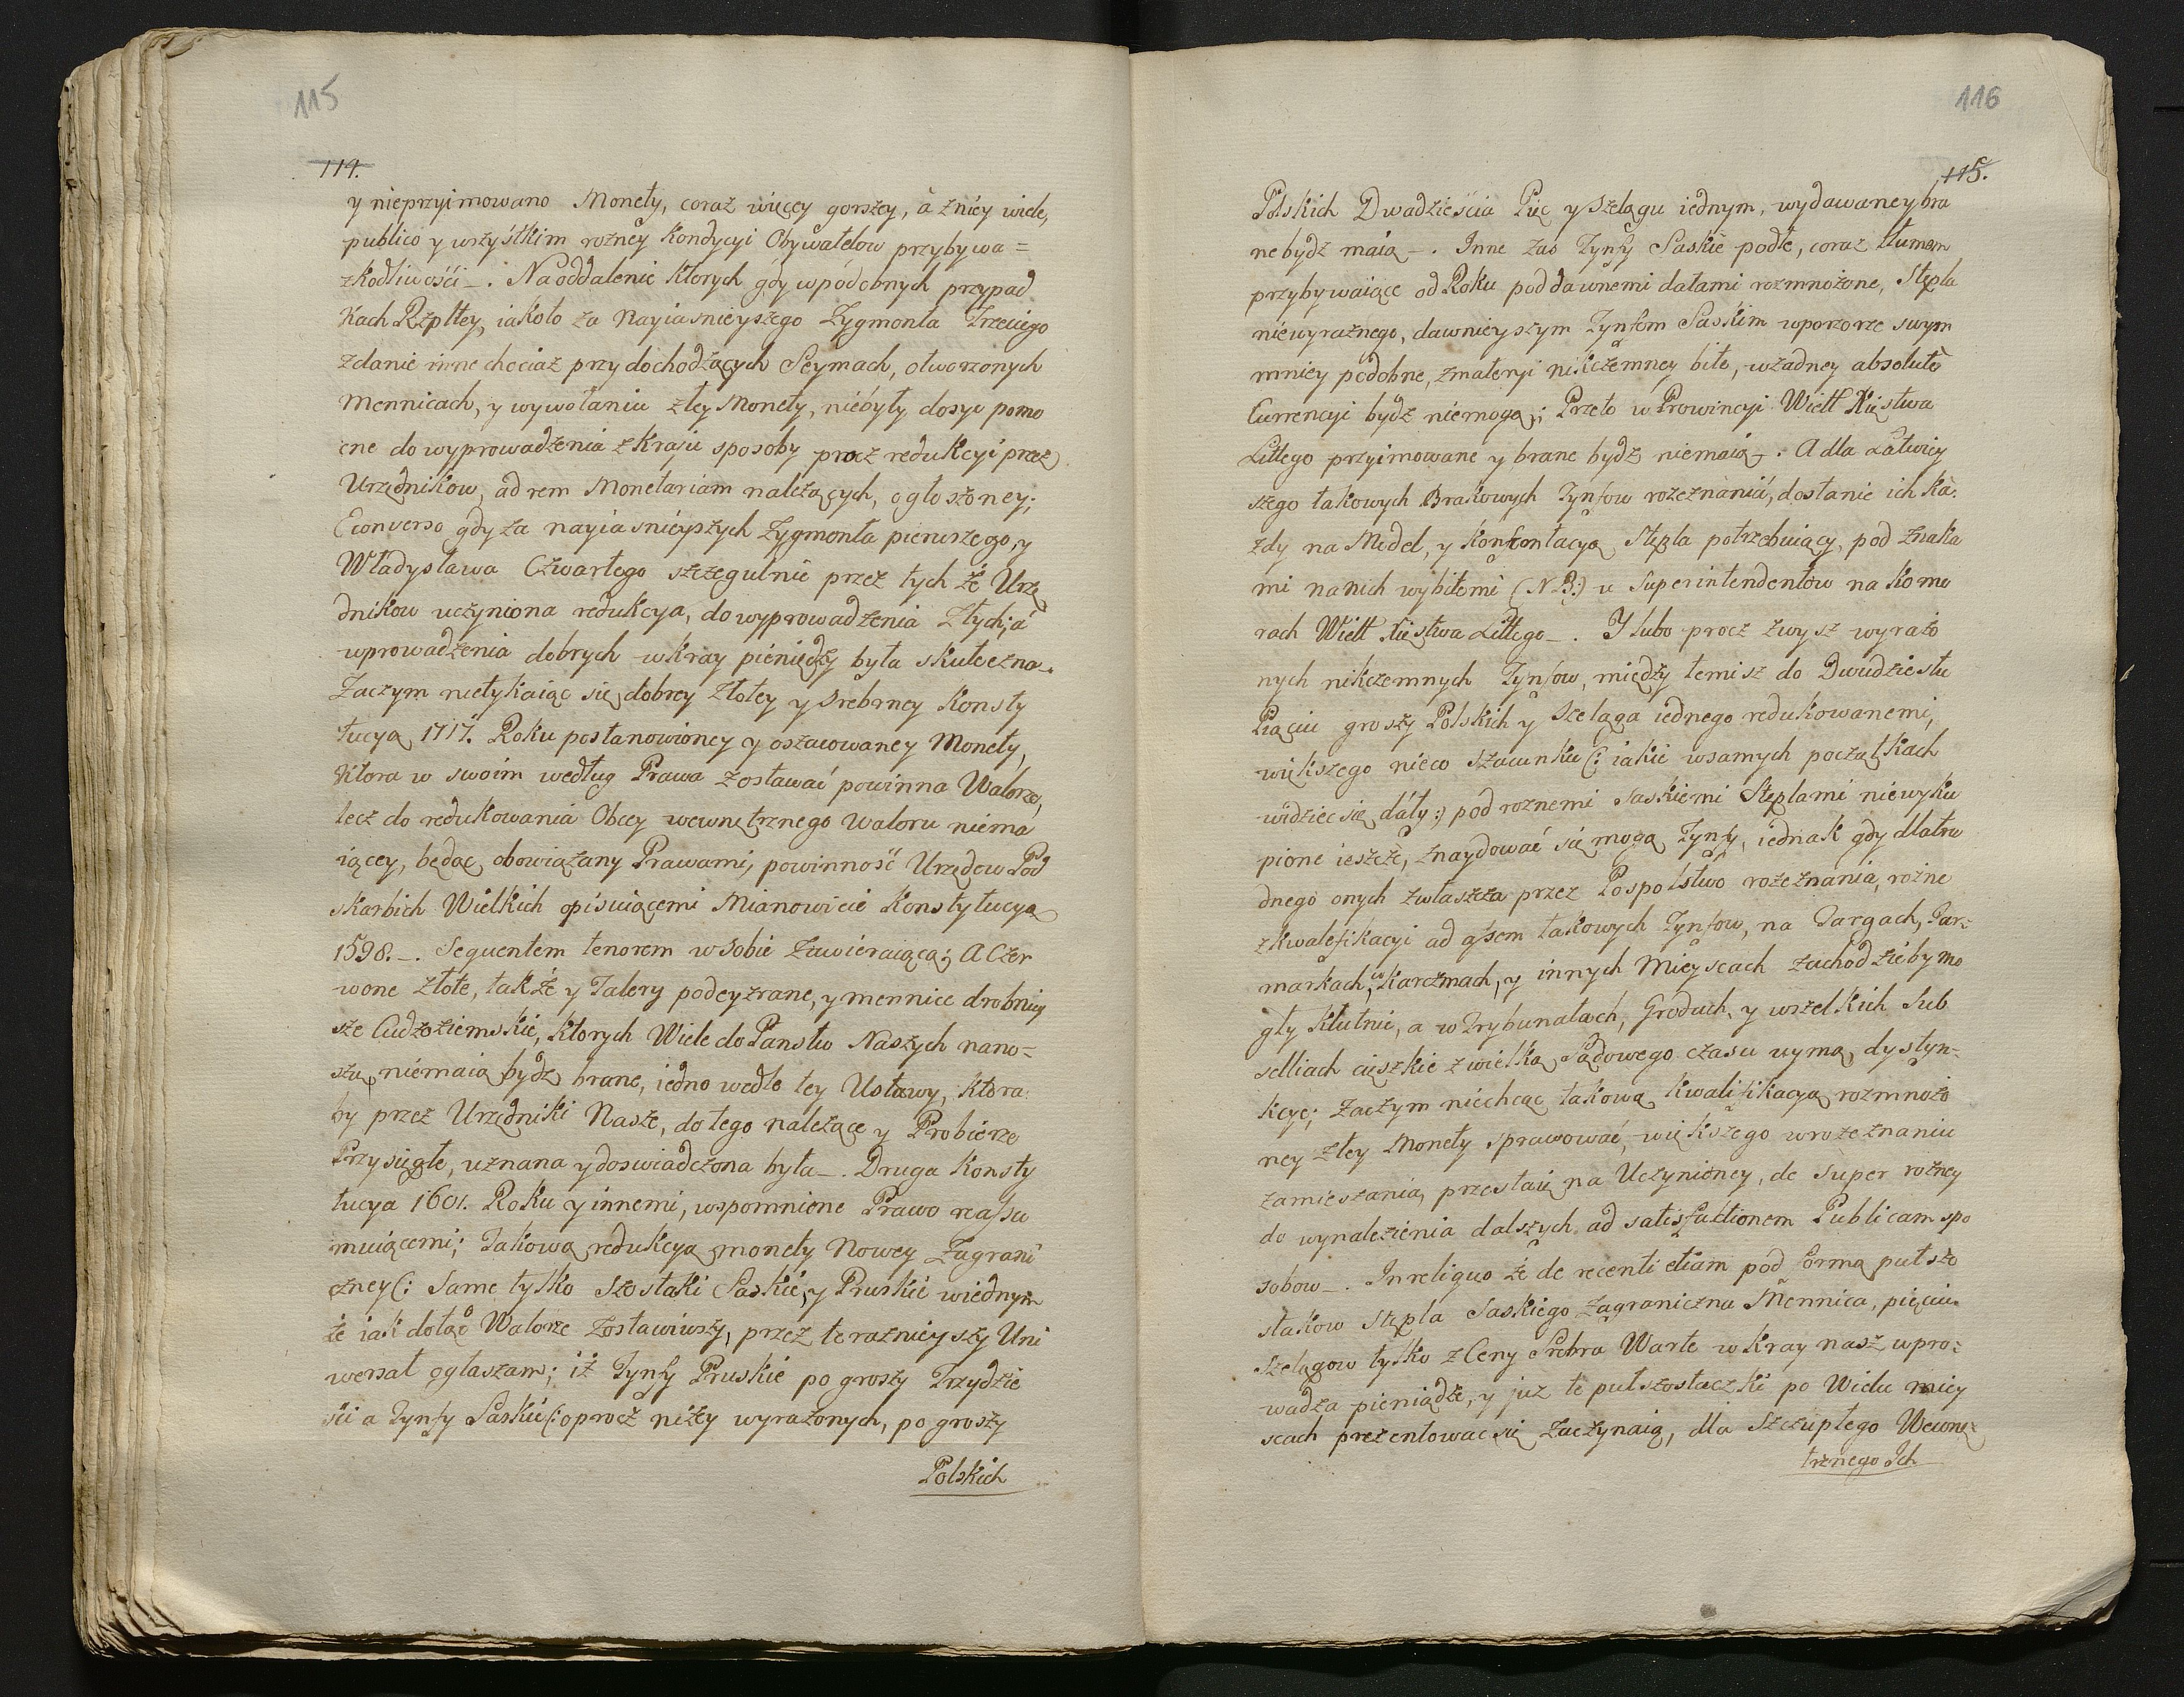 115
114.
y nieprzyimowano Monety, coraz więcey gorszey, à z niey wiele,
publico y wszystkim rozney Kondycyi Obywatelow przybywa =
zkodliwości _. Na oddalenie ktorych gdy w podobnych przypad
kach Rzpltey, iakoto za Nayiasnieyszego Zygmonta Trzeciego
zdanie inne chociaz przy dochodzących Seymach, otworzonych
Mennicach, y wywołaniu złey Monety, niebyły dosyc pomo
cne do wyprowadzenia z kraju sposoby procz redukcyi przez
Urzędnikow, ad rem Monetariam należących, ogłoszoney;
Econverso gdy za nayiasnieyszych Zygmonta pierwszego, y
Władysława Czwartego szczegulnie przez tych że Urzę
dnikow uczyniona redukcya, do wyprowadzenia Złych; á
wprowadzenia dobrych w kray pieniędzy była skuteczna.
Zaczym nietykaiąc się dobrey Złotey y srebrney Konsty
tucyą 1717. Roku postanowioney y oszacowaney Monety,
Ktora w swoim według Prawa zostawać powinna Walorze,
lecz do redukowania Obcey wewnętrznego waloru niema
iącey, będąc obowiązany Prawami, powinność Urzędow Pod
skarbich Wielkich opisuiącemi Mianowicie Konstytucyą
1598. _. Sequentem tenorem w sobie zawieraiącą; A Czer
wone Złote, także y Talery podeyzrane, y mennice drobniey
sze Cudzoziemskie, ktorych Wiele do Panstw Naszych nano =
szą, niemaią bydz brane, iedno wedle tey Ustawy, ktora
by przez Urzędniki Nasze, do tego należące y Probierze
Przysięgłe, uznana y doswiadczona była _. Druga Konsty
tucya 1601. Roku y innemi, wspomnione Prawo reassu
muiącemi; Takową redukcyą monety Nowey Zagrani
czney (: Same tylko szostaki Saskie, y Pruskie w iednym
że iak dotąd Walorze zostawiwszy, przez teraznieyszy Uni
wersał ogłaszam; iż Tynfy Pruskie po groszy Trzydzie
ści a Tynfy Saskie (: oprocz niżey wyrażonych, po groszy
Polskich
116
115.
Polskich Dwadzieścia Pięc y Szelągu iednym, wydawane y bra
ne bydź maią _. Inne zas Tynfy Saskie podłe, coraz tłumem
przybywaiące od Roku pod dawnemi datami rozmnożone, Stępla
niewyraznego, dawnieyszym Tynfom Saskim w porzorze swym
mniey podobne, z materyi nikczemney bite, w żadney absolutè
Currencyi bydz niemogą; Przeto w Prowincyi Wiell Xięstwa
Littego przyimowane y brane bydz niemaią _. A dla Łatwiey
szego takowych Brakowych Tynfow rozeznania, dostanie ich Ka =
zdy na Model, y konfrontacyą Stępla potrzebuiący, pod znaka
mi na nich wybitemi (N B:) u Superintendentow na komo
rach Wiell Xięstwa Littego _. Y lubo procz zwysz wyrazo
nych nikczemnych Tynfow, między temisz do Dwudziestu
Piąciu groszy Polskich y Szeląga iednego redukowanemi,
większego nieco szacunku (: iakie w samych początkach
widziec się dały :) pod roznemi Saskiemi Stęplami niewyku
pione ieszcze, znaydować się mogą Tynfy, iednak gdy dla tru
dnego onych zwłaszcza przez Pospolstwo rozeznania, rożne
z kwalifikacyi ad assem takowych Tynfow, na Targach, Jar =
markach, w Karczmach, y innych Mieyscach zachodziéby mo
gły Kłutnie, a w Trybunałach, Grodach, y wszelkich Sub
selliach cięszkie z wielką Sądowego czasu uymą, dystyn =
kcye; Zaczym niechcąc takową kwalifikacyą rozmnożo
ney złey Monety sprawować, większego w rozeznaniu
zamieszania, przestaię na Uczynioney, de super rozney
do wynalezienia dalszych ad satisfactionem Publicam spo
sobow _. In reliquo że de recenti etiam pod formą pułszo
stakow Stępla Saskiego zagraniczna Mennica, pięciu
Szelągow tylko z Ceny Srebra Warte w Kray nasz wpro =
wadza pieniądze, y juz te pułszostaczki po Wielu miey
scach prezentowac się zaczynaią, dla Szczupłego Wewnę =
trznego Ich